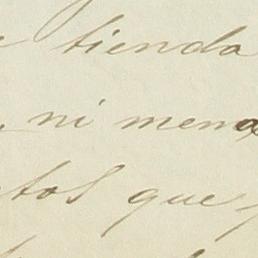 tienda
ni menos
tos que